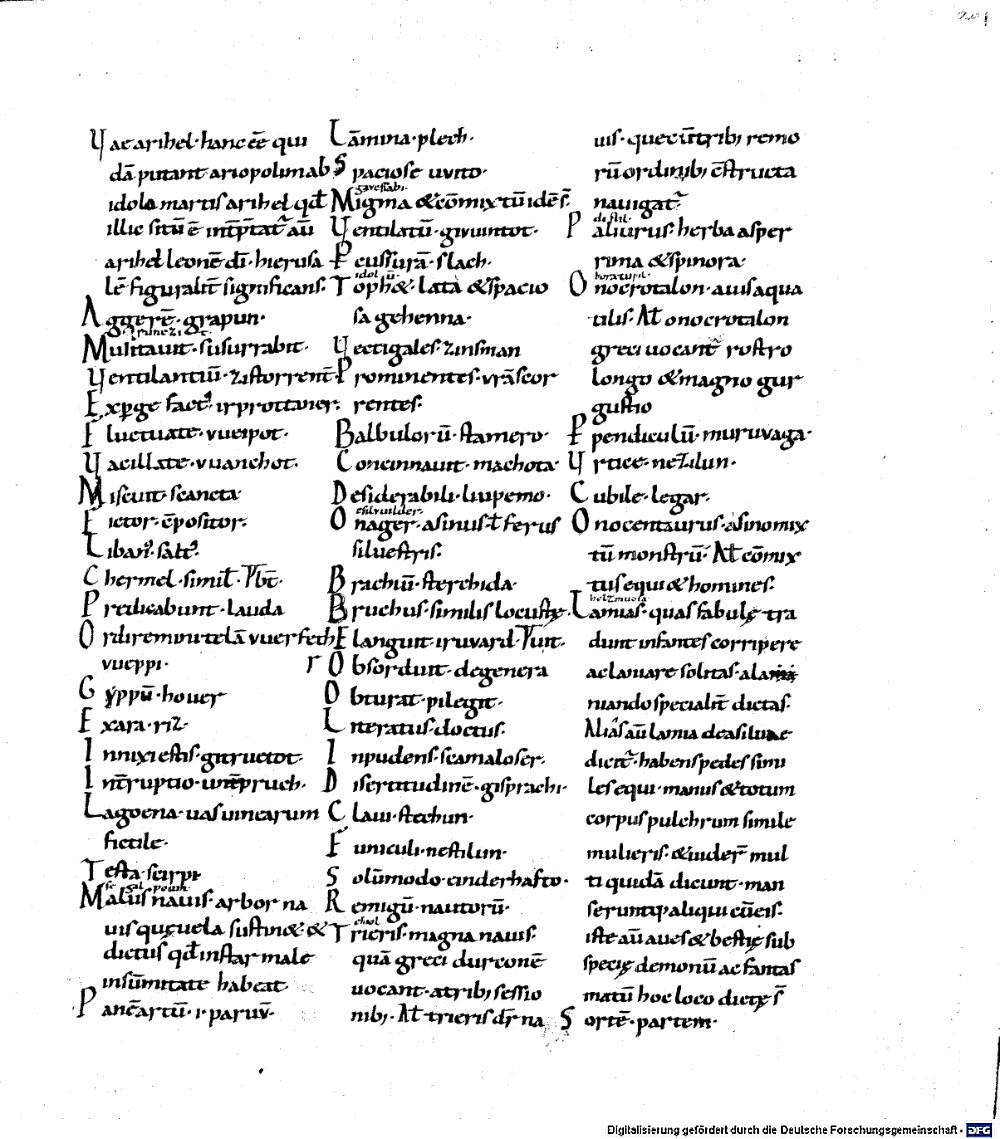 Vae arihel· hanc eē qui
dā putant ariopolim ab
idolo martis arihel qđ
illic sitū ē int̄p̄tat̄ aū
arihel leonē dī· hierusa
lē figuralit̄ significans·
Aggerē· grapun·
runezit·
Mussitauit· susurrabit·
Ventilantiū· zistorrent̄
Exp̱gefact᷒ irprottaner·
Fluctuate· vueipot·
Vacillate· vuanchot·
Miscuit scancta
Fictor· cōpositor·
Liban᷒· salt᷒·
Chermel· simil̄·
Predicabunt· lauda
Ordiremini telā vuerfeth
vueppi·
Gyppū· houer
Exara· riz·
Innixi estis· gitruetot·
Int̄ruptio· unt̄pruch·
Lagoena· uas uinearum
fictile·
Testa· scirpi
segalpoum
Malus nauis· arbor na
uis quę uela sustin& &
dictus qđ instar male
insūmitate habeat·
Pancartū· i· paruū·
Lāmina· plech·
Spaciose uvito·
gavessabi·
Migma & cōmixtū idē s̄·
Ventilatū· givuintot·
Pcussurā· slach·
idolū·
Toph&· lata &spacio
sa gehenna·
Vectigales· zinsman
Prominentes· vrāscor
rentes·
Balbulorū· stamero·
Concinnauit· machota·
Desiderabili· liupemo·
esilvuilder·
Onager· asinus· l̄ ferus
siluestris·
Brachiū· sterchida·
Bruchus· similis locustę·
Elanguit· iruvard
r Obsorduit· degenera
Obturat· pilegit·
Literatus· doctus·
Inpudens· scamaloser·
Disertitudinē· gisprachi·
Claui· stechun·
Funiculi· nestilun·
Solūmodo· einderhafto·
Remigū· nautorū·
chiol
Trieris· magna nauis·
quā greci durconē
uocant· a trib; sessio
nib;· Al̄ trieris dr̄ na
uis· quec̄ū trib; remo
rū ordinib; c̄structa
nauigat̄·
distil·
Paliurus· herba asper
rima &spinora·
horatupil·
Onocrotalon· auis aqua
tilis· Al̄ onocrotalon
greci uocant̄ rostro
longo & magno gur
gustio
Ppendiculū· muruvaga·
Vrtice· nezilun·
Cubile· legar·
Onocentaurus· asino mix
tū monstrū· Al̄ cōmix
tus equi & homines·
holzmuoia
Lamias· quas fabulę tra
dunt infantes corripere
ac laniare solitas· a la
niando specialit̄ dictas·
Alias aū lamia dea siluae
dicit̄· habens pedes simi
les equi· manus &totum
corpus pulchrum simile
mulieris· &uider̄ mul
ti quidā dicunt· man
serunt aliqui cū eis·
iste aū aues & bestię sub
specię demonū ac fantas
matū hoc loco dictę s̄
Sortē· partem·
Digitalisierung gefördert durch die Deutsche Forschungsgemeinschaft - DFG